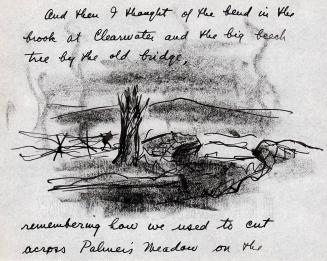 And then I thought of the bend in the
brook at Clearwater and the big beech
tree by the old bridge,
remembering how we used to cut
across Palmer's Meadow on the